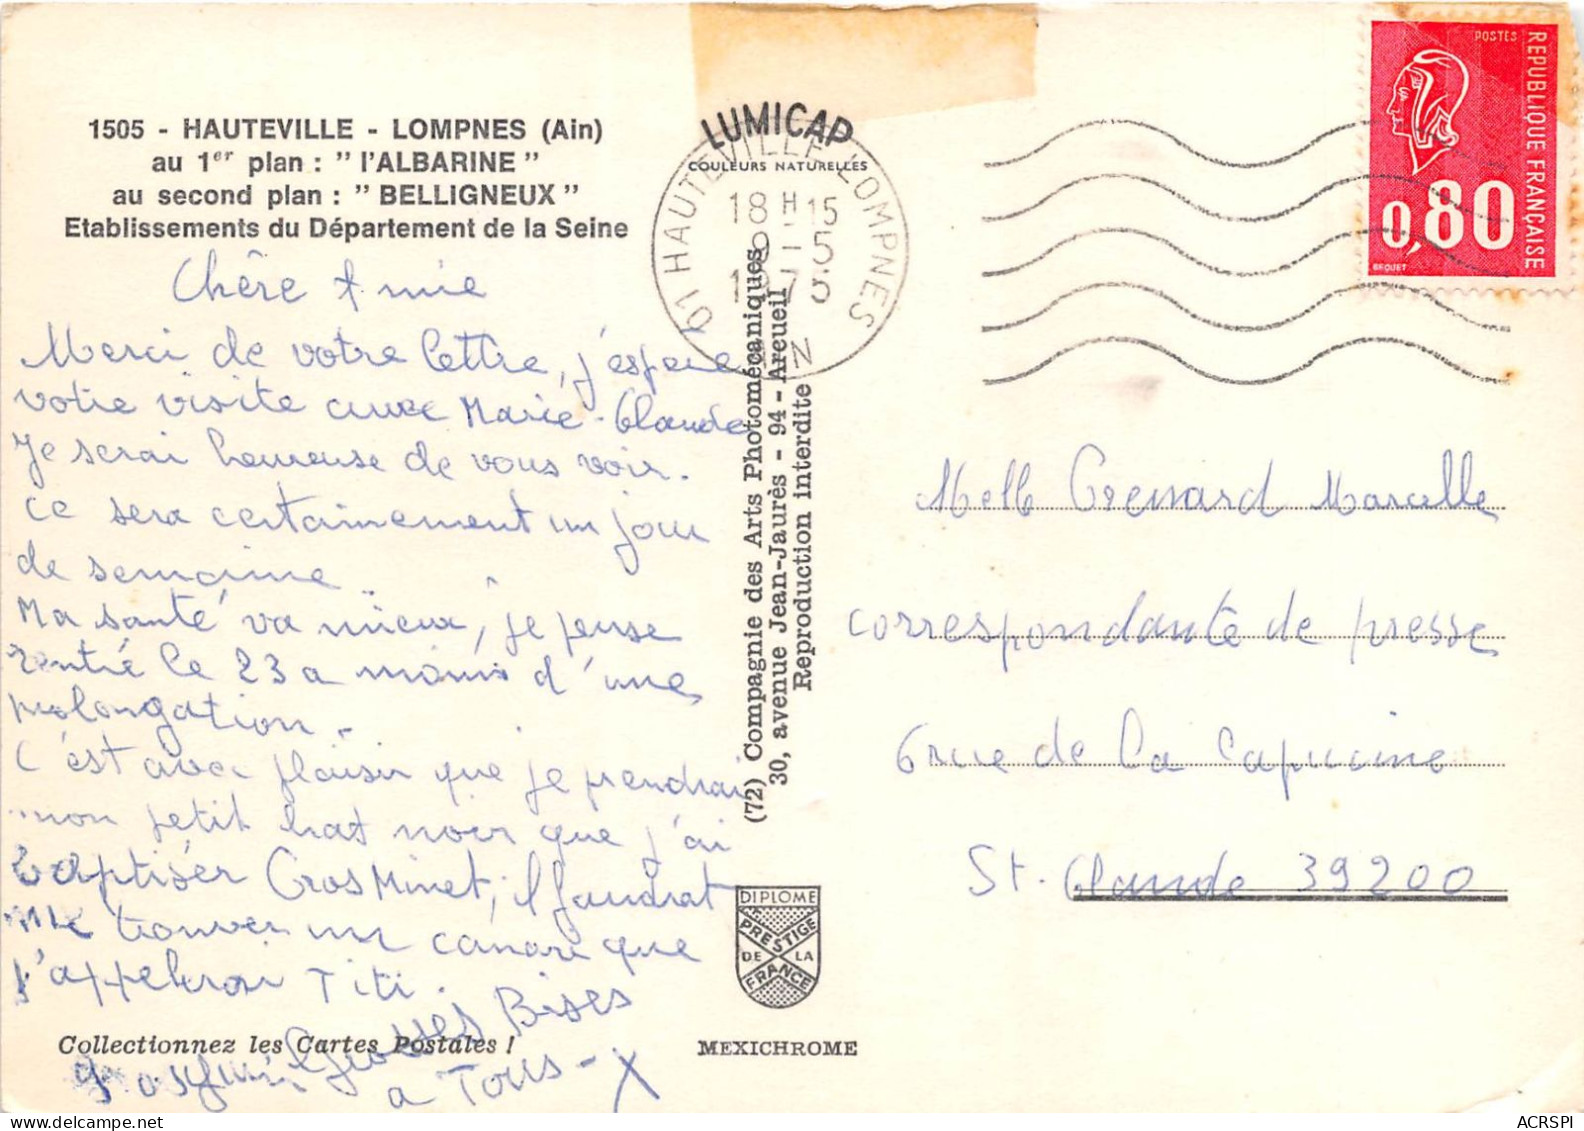 1505 - HAUTEVILLE - LOMPNES (Ain)
au 1er plan : " l'ALBARINE "
au second plan : " BELLIGNEUX "
Etablissements du Département de la Seine
Chère Amie
Merci de votre lettre, j'espère
votre visite avec Marie-Claude
Je serai heureuse de vous voir.
ce sera certainement un jour
de semaine
Ma santé va mieux, je pense
rentré le 23 a moins d'une
prolongation.
C'est avec plaisir que je prendrai
mon petit chat noir que j'ai
baptiser Gros Minet, il faudrat
me trouver un canari que
j'appelerai Titi.
Grosses Bises
a Tous -
Collectionnez les Cartes Postales !
LUMICAP
COULEURS NATURELLES
01 HAUTEVILLE-LOMPNES
18 H 15
9-5
AIN
(72) Compagnie des Arts Photomécaniques
30, avenue Jean-Jaurès - 94 - Arcueil
Reproduction interdite
DIPLOME
PRESTIGE
DE LA
FRANCE
MEXICHROME
POSTES
REPUBLIQUE FRANÇAISE
0,80
BEQUET
Melle Grenard Marcelle
correspondante de presse
6 rue de La Capucine
St. Claude 39200
ACRSPI